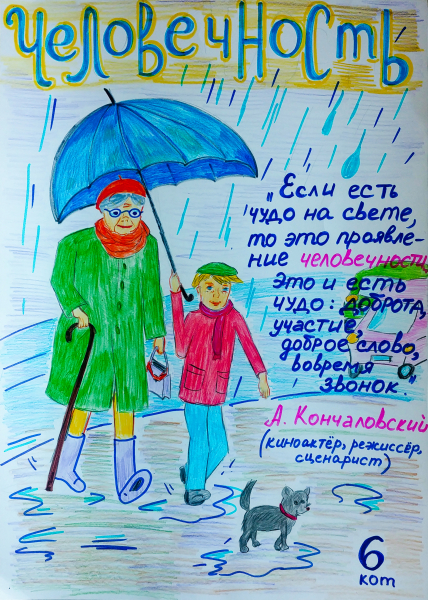 Человечность
„Если есть
чудо на свете,
то это проявле-
ние человечности,
Это и есть
чудо: доброта,
участие,
доброе слово,
вовремя
звонок."
А. Кончаловский
(киноактёр, режиссёр,
сценарист)
6
кот